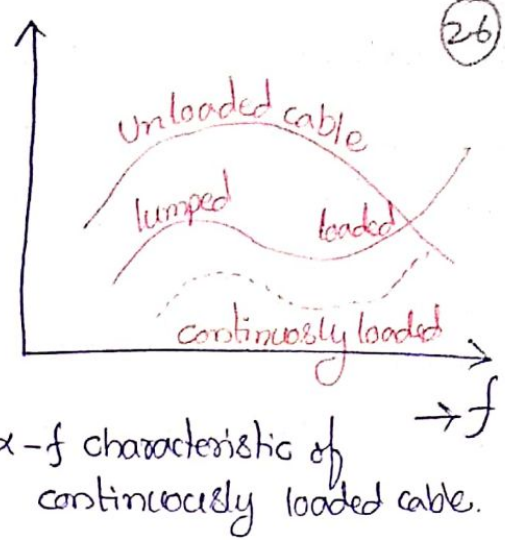 26
Unloaded cable
lumped loaded
continuosly loaded
→ f
α-f characteristic of
continuously loaded cable.